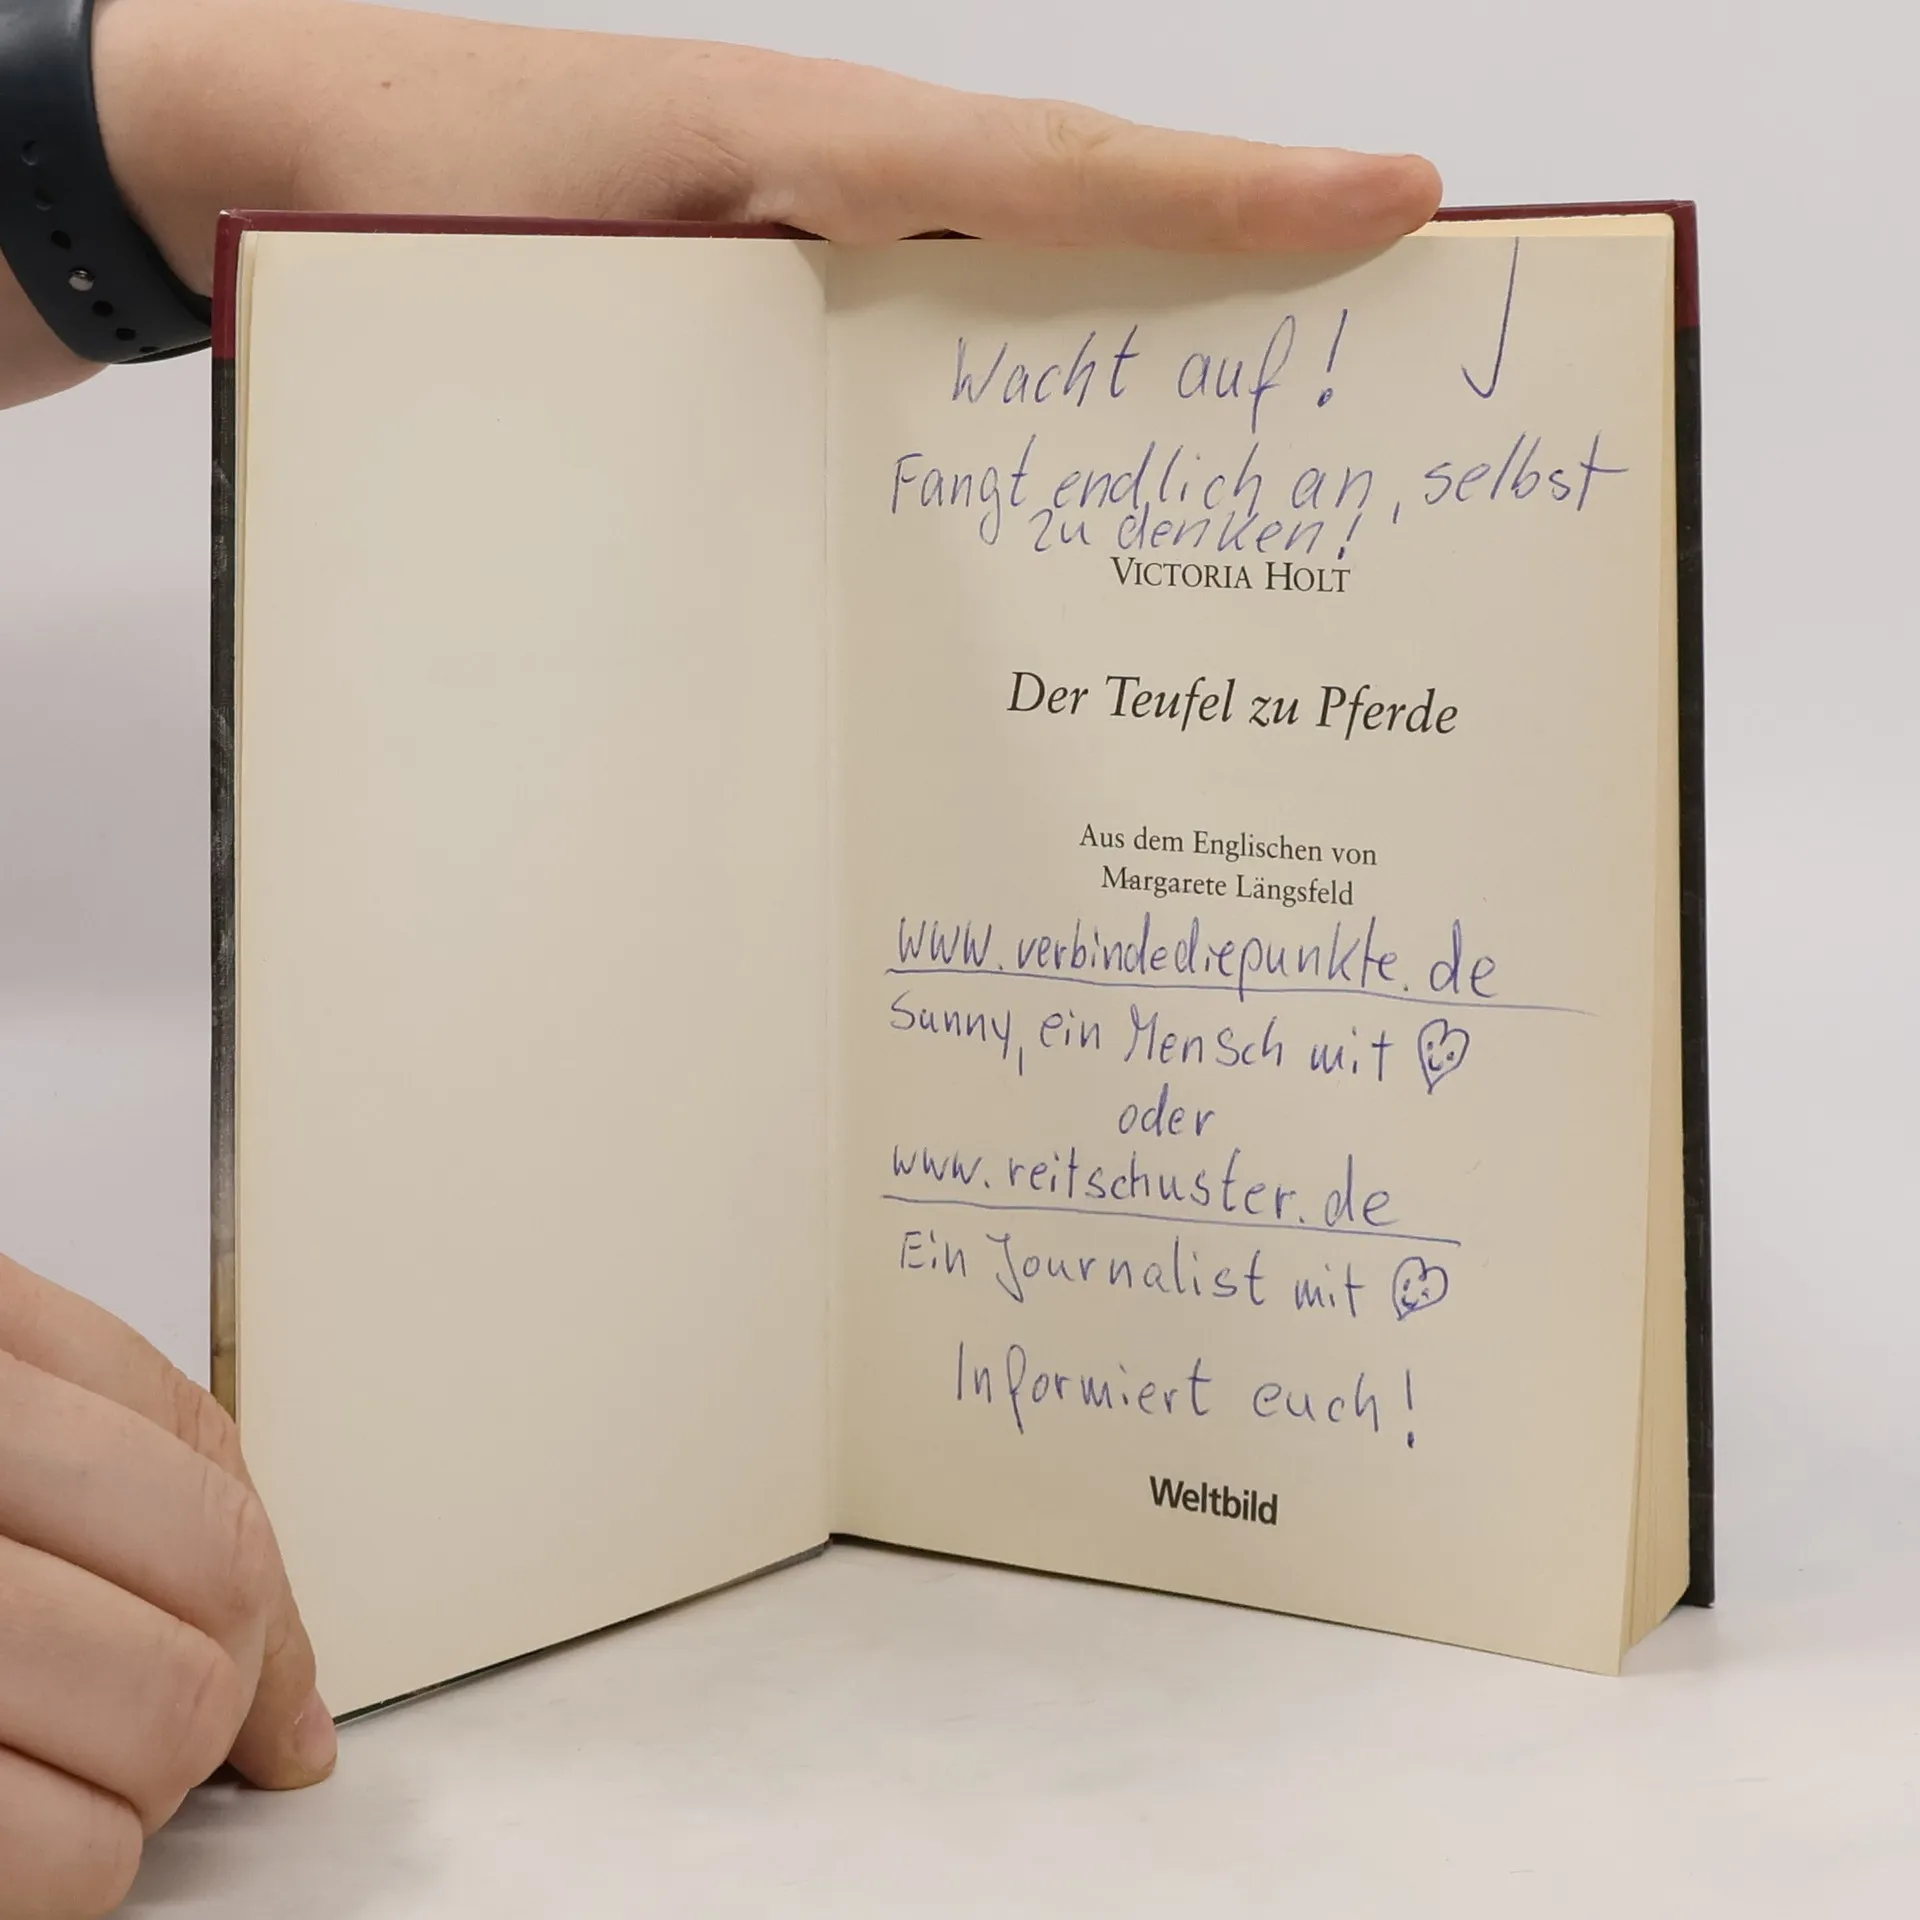 Wacht auf!
Fangt endlich an, selbst
zu denken!
VICTORIA HOLT
Der Teufel zu Pferde
Aus dem Englischen von
Margarete Längsfeld
www.verbindediepunkte.de
Sunny, ein Mensch mit
oder
www.reitschuster.de
Ein Journalist mit
Informiert euch!
Weltbild